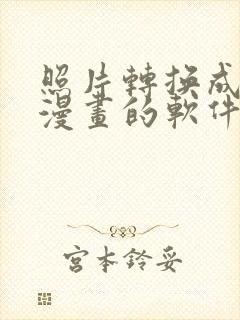 照片轉換成
漫畫的軟件
宮本鈴妥